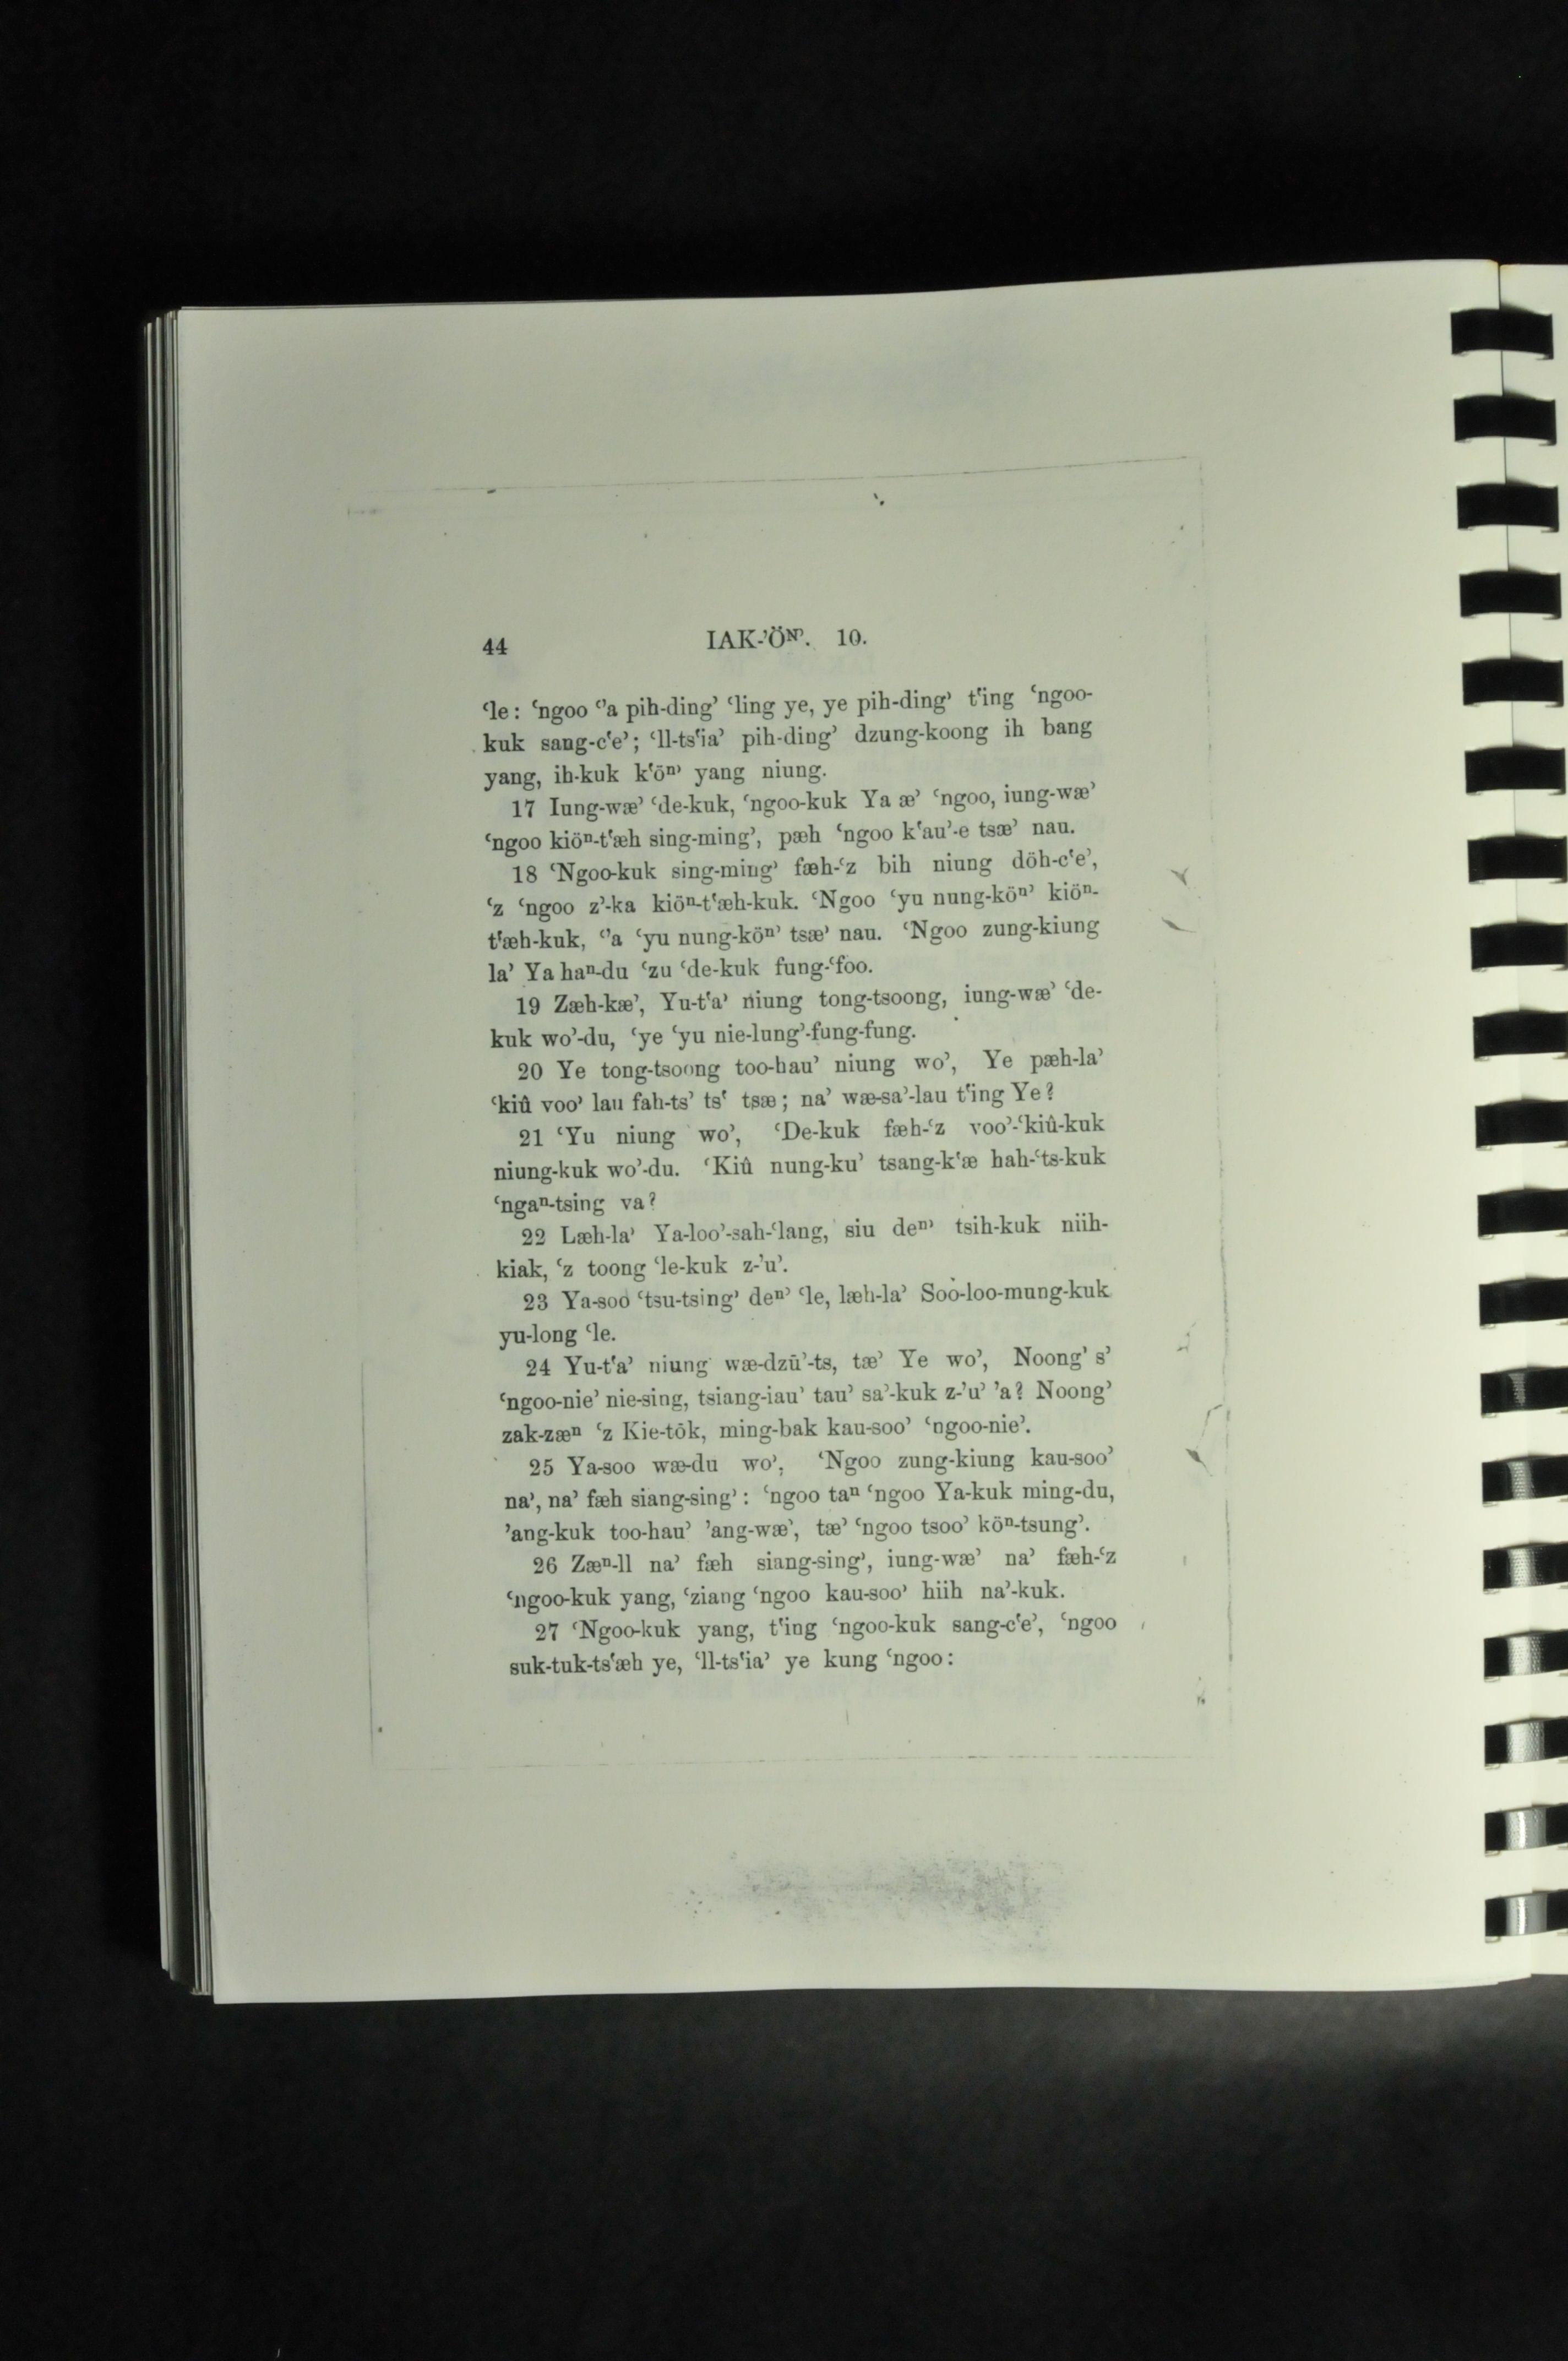 44 IAK-’Öᴺ’. 10.
‘le: ‘ngoo ‘’a pih-ding’ ‘ling ye, ye pih-ding’ t‘ing ‘ngoo-
kuk sang-c‘e’; ‘ll-ts‘ia’ pih-ding’ dzung-koong ih bang
yang, ih-kuk k‘öⁿ’ yang niung.
17 Iung-wæ’ ‘de-kuk, ‘ngoo-kuk Ya æ’ ‘ngoo, iung-wæ’
‘ngoo kiöⁿ-t‘æh sing-ming’, pæh ‘ngoo k‘au’-e tsæ’ nau.
18 ‘Ngoo-kuk sing-ming’ fæh-‘z bih niung döh-c‘e’,
‘z ‘ngoo z’-ka kiöⁿ-t‘æh-kuk. ‘Ngoo ‘yu nung-köⁿ’ kiöⁿ-
t‘æh-kuk, ‘’a ‘yu nung-köⁿ’ tsæ’ nau. ‘Ngoo zung-kiung
la’ Ya haⁿ-du ‘zu ‘de-kuk fung-‘foo.
19 Zæh-kæ’, Yu-t‘a’ niung tong-tsoong, iung-wæ’ ‘de-
kuk wo’-du, ‘ye ‘yu nie-lung’-fung-fung.
20 Ye tong-tsoong too-hau’ niung wo’, Ye pæh-la’
‘kiû voo’ lau fah-ts’ ts‘ tsæ; na’ wæ-sa’-lau t‘ing Ye?
21 ‘Yu niung wo’, ‘De-kuk fæh-‘z voo’-‘kiû-kuk
niung-kuk wo’-du. ‘Kiû nung-ku’ tsang-k‘æ hah-‘ts-kuk
‘ngaⁿ-tsing va?
22 Læh-la’ Ya-loo’-sah-‘lang, siu deⁿ’ tsih-kuk niih-
kiak, ‘z toong ‘le-kuk z-’u’.
23 Ya-soo ‘tsu-tsing’ deⁿ’ ‘le, læh-la’ Soo-loo-mung-kuk
yu-long ‘le.
24 Yu-t‘a’ niung wæ-dzū’-ts, tæ’ Ye wo’, Noong’ s’
‘ngoo-nie’ nie-sing, tsiang-iau’ tau’ sa’-kuk z-’u’ ’a? Noong’
zak-zæⁿ ‘z Kie-tōk, ming-bak kau-soo’ ‘ngoo-nie’.
25 Ya-soo wæ-du wo’, ‘Ngoo zung-kiung kau-soo’
na’, na’ fæh siang-sing’: ‘ngoo taⁿ ‘ngoo Ya-kuk ming-du,
’ang-kuk too-hau’ ’ang-wæ’, tæ’ ‘ngoo tsoo’ köⁿ-tsung’.
26 Zæⁿ-ll na’ fæh siang-sing’, iung-wæ’ na’ fæh-‘z
‘ngoo-kuk yang, ‘ziang ‘ngoo kau-soo’ hiih na’-kuk.
27 ‘Ngoo-kuk yang, t‘ing ‘ngoo-kuk sang-c‘e’, ‘ngoo
suk-tuk-ts‘æh ye, ‘ll-ts‘ia’ ye kung ‘ngoo: